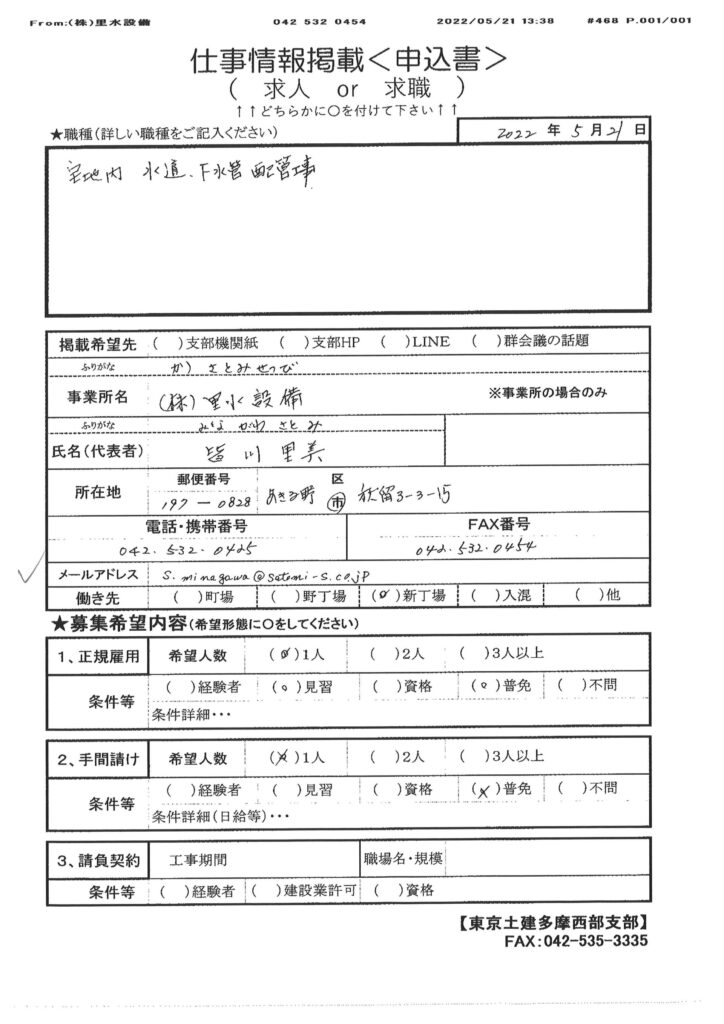 From:(株)里水設備 042 532 0454 2022/05/21 13:38 #468 P.001/001
仕事情報掲載<申込書>
( 求人 or 求職 )
↑↑どちらかに○を付けて下さい↑↑
★職種(詳しい職種をご記入ください) 2022 年 5月 21 日
宅地内 水道、下水管 配管工事
掲載希望先 ( )支部機関紙 ( )支部HP ( )LINE ( )群会議の話題
ふりがな か) さとみせつび
事業所名 (株)里水設備 ※事業所の場合のみ
ふりがな みながわ さとみ
氏名(代表者) 皆川 里美
所在地 郵便番号 197-0828 あきる野 区 市 秋留3-3-15
電話・携帯番号 FAX番号
042.532.0425 042.532.0454
メールアドレス s.minagawa@satomi-s.co.jp
働き先 ( )町場 ( )野丁場 (○)新丁場 ( )入混 ( )他
★募集希望内容(希望形態に○をしてください)
1、正規雇用 希望人数 (○)1人 ( )2人 ( )3人以上
条件等 ( )経験者 (○)見習 ( )資格 (○)普免 ( )不問
条件詳細・・・
2、手間請け 希望人数 (×)1人 ( )2人 ( )3人以上
条件等 ( )経験者 ( )見習 ( )資格 (×)普免 ( )不問
条件詳細(日給等)・・・
3、請負契約 工事期間 職場名・規模
条件等 ( )経験者 ( )建設業許可 ( )資格
【東京土建多摩西部支部】
FAX:042-535-3335